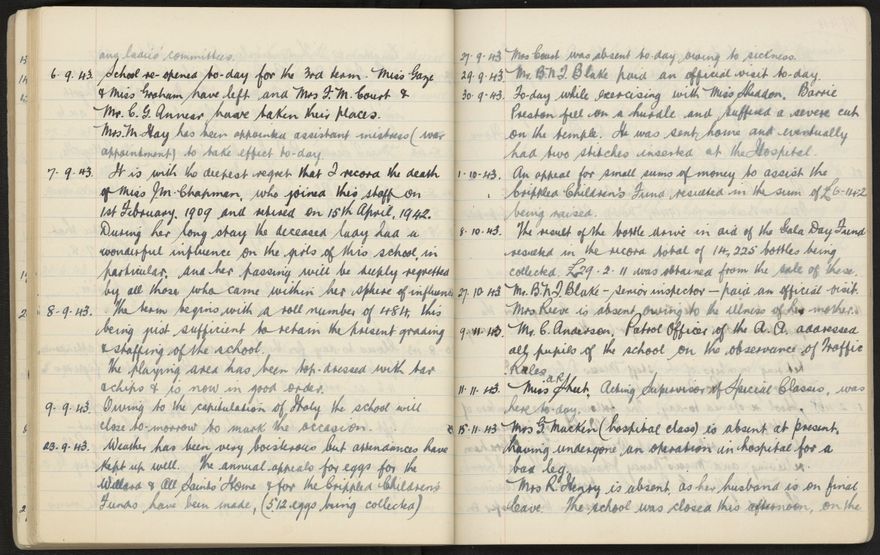 any ladies' committees.
6.9.43. School re-opened to-day for the 3rd term. Miss Gaze
& Miss Graham have left and Mrs F. M. Court &
Mr. C. G. Annear have taken their places.
Mrs. M. Hay has been appointed assistant mistress (war
appointment) to take effect to-day
7.9.43. It is with the deepest regret that I record the death
of Miss J.M. Chapman, who joined this staff on
1st February, 1909 and retired on 15th April, 1942.
During her long stay the deceased lady had a
wonderful influence on the girls of this school, in
particular, and her passing will be deeply regretted
by all those who came within her sphere of influence
8.9.43. The term begins with a roll number of 484, this
being just sufficient to retain the present grading
& staffing of the school.
The playing area has been top-dressed with tar
& chips & is now in good order.
9.9.43. Owing to the capitulation of Italy the school will
close to-morrow to mark the occasion.
23.9.43. Weather has been very boisterous but attendances have
kept up well. The annual appeals for eggs for the
Willard & All Saints' Home & for the Crippled Children's
Funds have been made, (512 eggs being collected)
27.9.43 Mrs Court was absent to-day owing to sickness.
29.9.43 Mr. B. N. T. Blake paid an official visit to-day.
30.9.43. To-day while exercising with Miss Sheddon, Barrie
Preston fell on a hurdle and suffered a severe cut
on the temple. He was sent home and eventually
had two stitches inserted at the Hospital.
1.10.43. An appeal for small sums of money to assist the
Crippled Children's Fund resulted in the sum of
being raised.
8.10.43. The result of the bottle drive in aid of the Gala Day Fund
resulted in the record total of 14,225 bottles being
collected. £29.2.11 was obtained from the sale of these.
27.10.43 Mr. B. N. T. Blake - senior inspector - paid an official visit.
Mrs Reeve is absent owing to the illness of her mother.
9.11.43. Mr. C. Anderson, Patrol Officer of the A.A. addressed
all pupils of the school on the observance of Traffic
Rules.
11.11.43. Miss Sheat, Acting Supervisor of Special Classes, was
here to-day.
15.11.43. Mrs G. (hospital class) is absent at present,
having undergone an operation in hospital for a
bad leg.
Mrs R. Henry is absent, as her husband is on final
leave. The school was closed this afternoon, on the